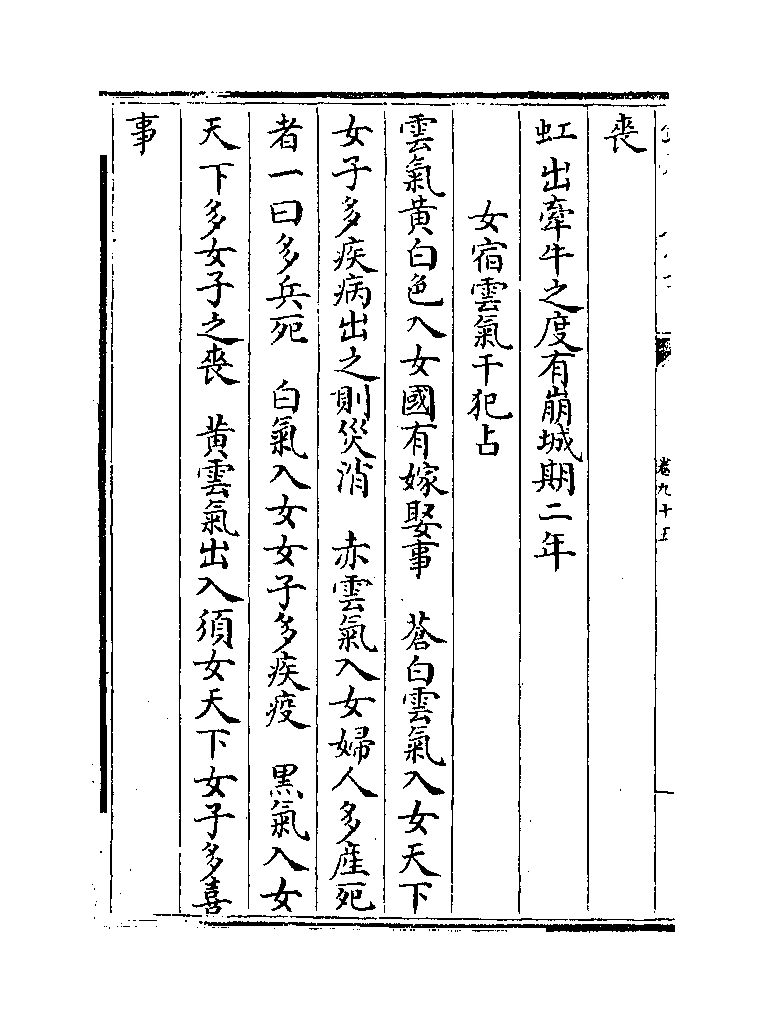 喪
虹出牽牛之度有崩城期二年
女宿雲氣干犯占
雲氣黄白色入女國有嫁娶事　蒼白雲氣入女天下
女子多疾病出之則災消　赤雲氣入女婦人多産死
者一曰多兵死　白氣入女女子多疾疫　黒氣入女
天下多女子之喪　黄雲氣出入須女天下女子多喜
事
卷九十五